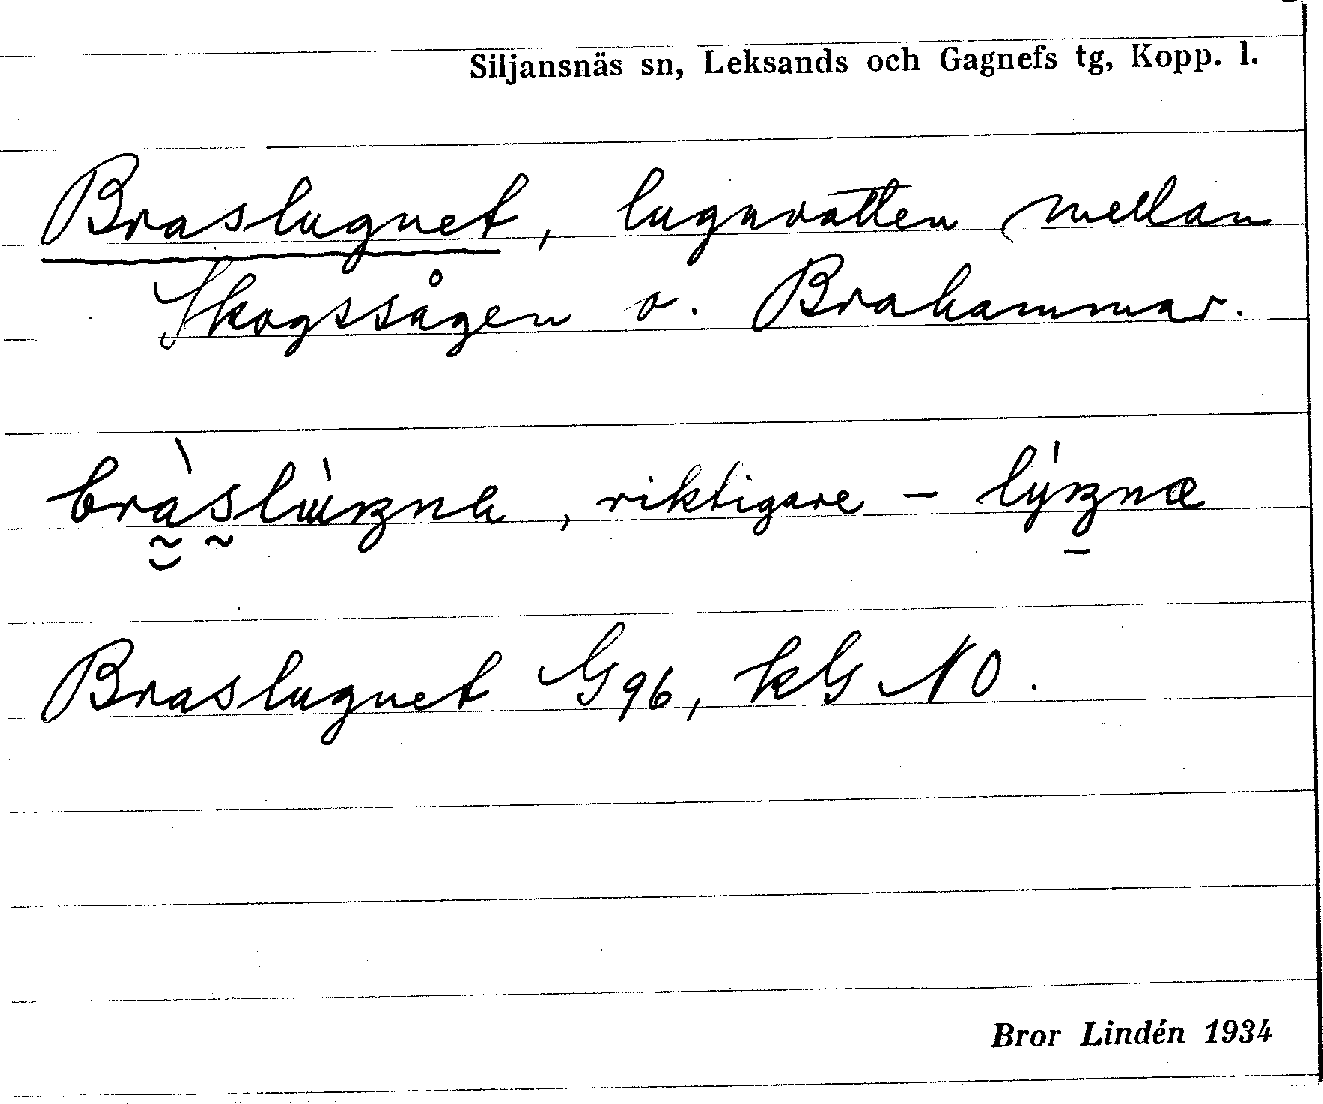 Siljansnäs sn, Leksands och Gagnefs tg, Kopp. l.
Braslugnet, lugnvatten mellan
Skogssågen o. Brahammar.
riktigare –
Braslugnet G96, kG NO.
Bror Lindén 1934